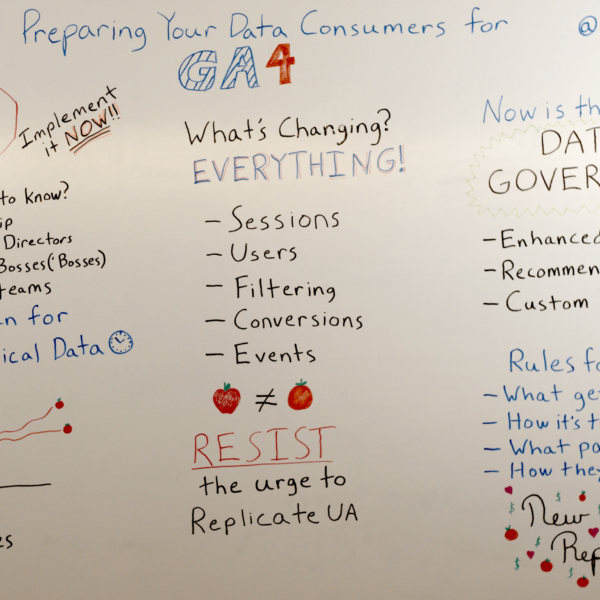 Preparing Your Data Consumers for
@
GA4
Implement
it NOW!!
to know?
Directors
Bosses(Bosses)
teams
for
Data
What's Changing?
EVERYTHING!
- Sessions
- Users
- Filtering
- Conversions
- Events
≠
RESIST
the urge to
Replicate UA
Now is
- Enhanced
- Custom
Rules
- What
- How it's
- What
- How they
New